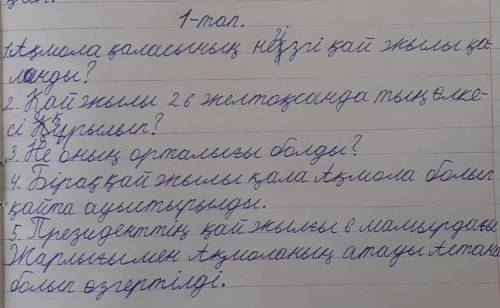 1-топ.
1. Ақмола қаласының негізгі қай жылы қа-
ланды?
2. Қай жылы 26 желтоқсанда тың өлке-
сі құрылып?
3. Не оның орталығы болды?
4. Бірақ қай жылы қала Ақмола болып
қайта ауыстырылды.
5. Президенттің қай жылғы 6 мамырдағы
Жарлығымен Ақмоланың атауы Астана
болып өзгертілді.